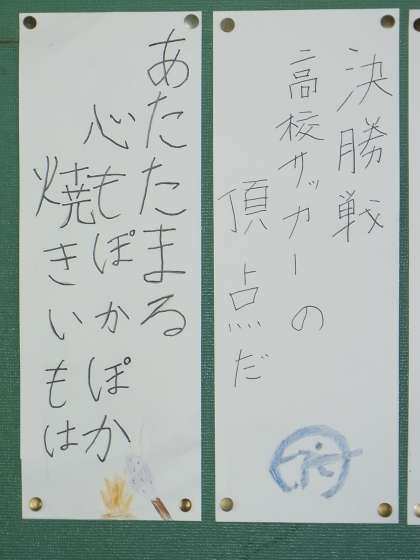 決勝戦
高校サッカーの
頂点だ
あたたまる
心もぽかぽか
焼きいもは